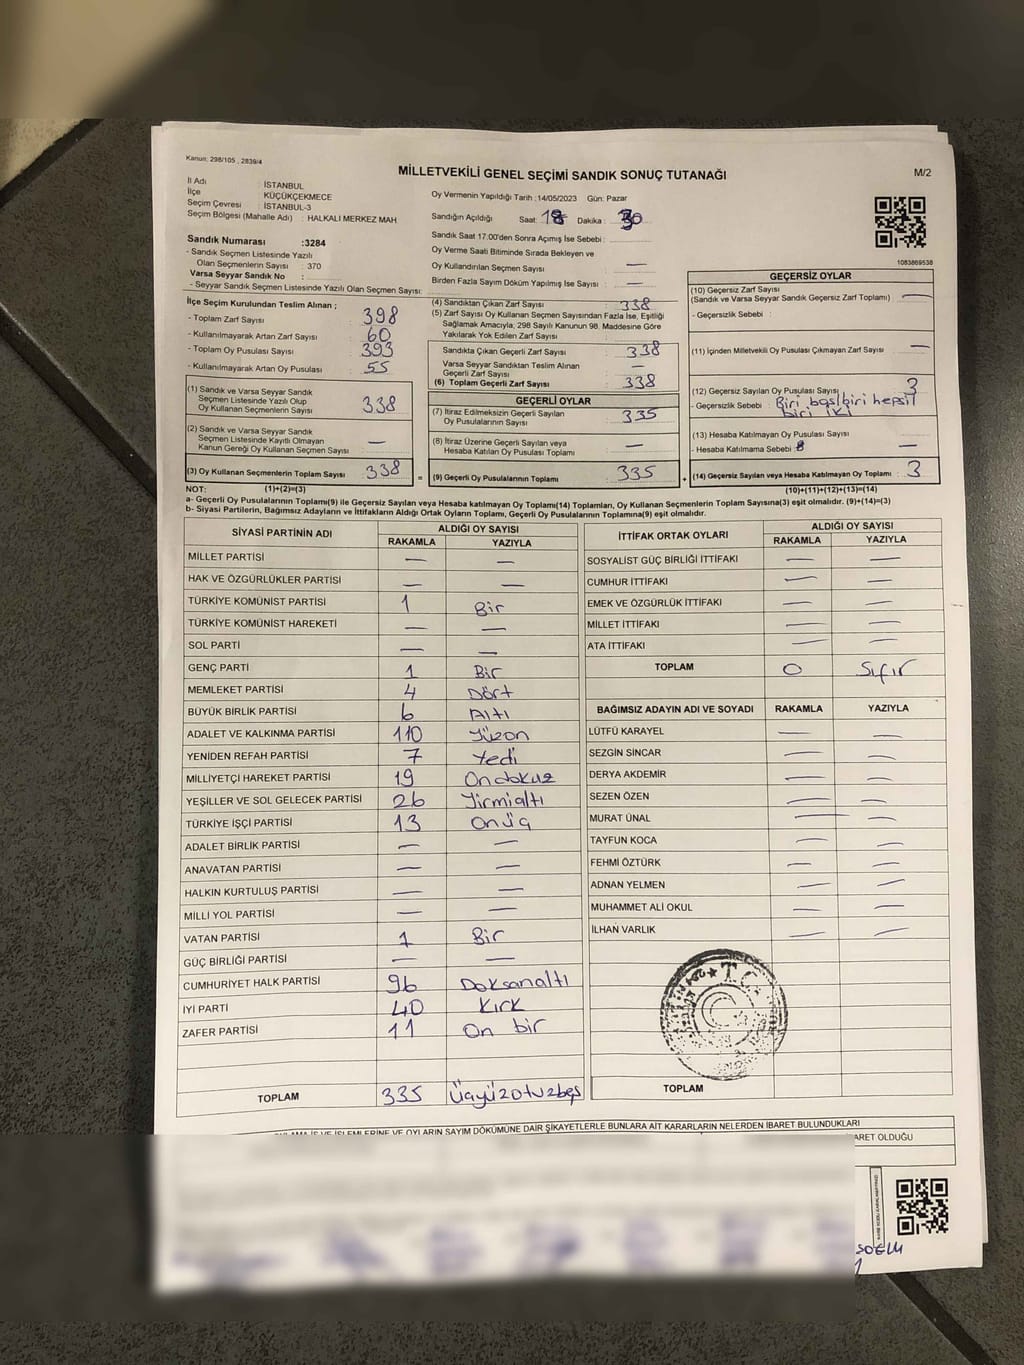 Kanun: 298/105 , 2839/4
MİLLETVEKİLİ GENEL SEÇİMİ SANDIK SONUÇ TUTANAĞI
M/2
İl Adı : İSTANBUL
İlçe : KÜÇÜKÇEKMECE
Seçim Çevresi : İSTANBUL-3
Seçim Bölgesi (Mahalle Adı) : HALKALI MERKEZ MAH
Sandık Numarası :3284
- Sandık Seçmen Listesinde Yazılı
Olan Seçmenlerin Sayısı : 370
Varsa Seyyar Sandık No :
- Seyyar Sandık Seçmen Listesinde Yazılı Olan Seçmen Sayısı:
İlçe Seçim Kurulundan Teslim Alınan ;
- Toplam Zarf Sayısı : 398
- Kullanılmayarak Artan Zarf Sayısı : 60
- Toplam Oy Pusulası Sayısı : 393
- Kullanılmayarak Artan Oy Pusulası : 55
(1) Sandık ve Varsa Seyyar Sandık
Seçmen Listesinde Yazılı Olup
Oy Kullanan Seçmenlerin Sayısı 338
(2) Sandık ve Varsa Seyyar Sandık
Seçmen Listesinde Kayıtlı Olmayan
Kanun Gereği Oy Kullanan Seçmen Sayısı —
(3) Oy Kullanan Seçmenlerin Toplam Sayısı 338
Oy Vermenin Yapıldığı Tarih :14/05/2023 Gün: Pazar
Sandığın Açıldığı Saat: 18 Dakika : 30
Sandık Saat 17:00'den Sonra Açımış İse Sebebi :
Oy Verme Saati Bitiminde Sırada Bekleyen ve
Oy Kullandırılan Seçmen Sayısı : —
Birden Fazla Sayım Döküm Yapılmış İse Sayısı : —
(4) Sandıktan Çıkan Zarf Sayısı : 338
(5) Zarf Sayısı Oy Kullanan Seçmen Sayısından Fazla İse, Eşitliği
Sağlamak Amacıyla, 298 Sayılı Kanunun 98. Maddesine Göre
Yakılarak Yok Edilen Zarf Sayısı :
Sandıkta Çıkan Geçerli Zarf Sayısı : 338
Varsa Seyyar Sandıktan Teslim Alınan
Geçerli Zarf Sayısı : —
(6) Toplam Geçerli Zarf Sayısı : 338
GEÇERLİ OYLAR
(7) İtiraz Edilmeksizin Geçerli Sayılan
Oy Pusulalarının Sayısı : 335
(8) İtiraz Üzerine Geçerli Sayılan veya
Hesaba Katılan Oy Pusulası Toplamı : —
= (9) Geçerli Oy Pusulalarının Toplamı : 335 +
1083869538
GEÇERSİZ OYLAR
(10) Geçersiz Zarf Sayısı :
(Sandık ve Varsa Seyyar Sandık Geçersiz Zarf Toplamı) —
- Geçersizlik Sebebi :
(11) İçinden Milletvekili Oy Pusulası Çıkmayan Zarf Sayısı : —
(12) Geçersiz Sayılan Oy Pusulası Sayısı : 3
- Geçersizlik Sebebi : Biri boş/biri hepsi
biri iki
(13) Hesaba Katılmayan Oy Pusulası Sayısı :
- Hesaba Katılmama Sebebi : —
(14) Geçersiz Sayılan veya Hesaba Katılmayan Oy Toplamı : 3
NOT: (1)+(2)=(3) (10)+(11)+(12)+(13)=(14)
a- Geçerli Oy Pusulalarının Toplamı(9) ile Geçersiz Sayılan veya Hesaba katılmayan Oy Toplamı(14) Toplamları, Oy Kullanan Seçmenlerin Toplam Sayısına(3) eşit olmalıdır. (9)+(14)=(3)
b- Siyasi Partilerin, Bağımsız Adayların ve İttifakların Aldığı Ortak Oyların Toplamı, Geçerli Oy Pusulalarının Toplamına(9) eşit olmalıdır.
SİYASİ PARTİNİN ADI ALDIĞI OY SAYISI
RAKAMLA YAZIYLA
MİLLET PARTİSİ — —
HAK VE ÖZGÜRLÜKLER PARTİSİ — —
TÜRKİYE KOMÜNİST PARTİSİ 1 Bir
TÜRKİYE KOMÜNİST HAREKETİ — —
SOL PARTİ — —
GENÇ PARTİ 1 Bir
MEMLEKET PARTİSİ 4 Dört
BÜYÜK BİRLİK PARTİSİ 6 Altı
ADALET VE KALKINMA PARTİSİ 110 Yüzon
YENİDEN REFAH PARTİSİ 7 Yedi
MİLLİYETÇİ HAREKET PARTİSİ 19 Ondokuz
YEŞİLLER VE SOL GELECEK PARTİSİ 26 Yirmialtı
TÜRKİYE İŞÇİ PARTİSİ 13 Onüç
ADALET BİRLİK PARTİSİ — —
ANAVATAN PARTİSİ — —
HALKIN KURTULUŞ PARTİSİ — —
MİLLİ YOL PARTİSİ — —
VATAN PARTİSİ 1 Bir
GÜÇ BİRLİĞİ PARTİSİ — —
CUMHURİYET HALK PARTİSİ 96 Doksanaltı
İYİ PARTİ 40 Kırk
ZAFER PARTİSİ 11 On bir
TOPLAM 335 Üçyüzotuzbeş
İTTİFAK ORTAK OYLARI ALDIĞI OY SAYISI
RAKAMLA YAZIYLA
SOSYALİST GÜÇ BİRLİĞİ İTTİFAKI — —
CUMHUR İTTİFAKI — —
EMEK VE ÖZGÜRLÜK İTTİFAKI — —
MİLLET İTTİFAKI — —
ATA İTTİFAKI — —
TOPLAM 0 Sıfır
BAĞIMSIZ ADAYIN ADI VE SOYADI RAKAMLA YAZIYLA
LÜTFÜ KARAYEL — —
SEZGİN SİNCAR — —
DERYA AKDEMİR — —
SEZEN ÖZEN — —
MURAT ÜNAL — —
TAYFUN KOCA — —
FEHMİ ÖZTÜRK — —
ADNAN YELMEN — —
MUHAMMET ALİ OKUL — —
İLHAN VARLIK — —
T.C.
TOPLAM
İŞ VE İŞLEMLERİNE VE OYLARIN SAYIM DÖKÜMÜNE DAİR ŞİKAYETLERLE BUNLARA AİT KARARLARIN NELERDEN İBARET BULUNDUKLARI
BARET OLDUĞU